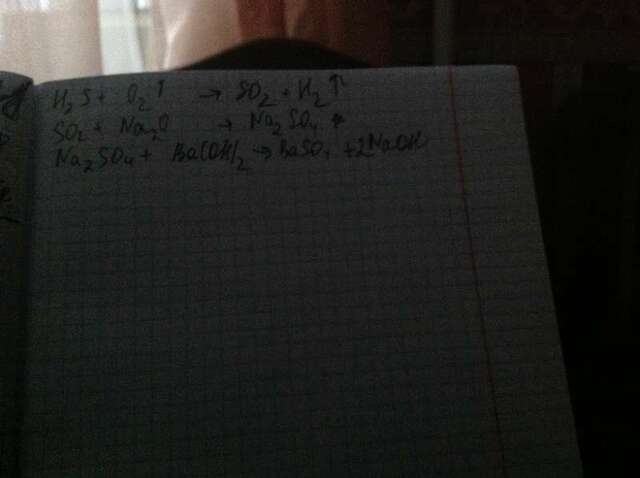 H₂S + O₂↑ → SO₂ + H₂↑
SO₂ + Na₂O → Na₂SO₄
Na₂SO₄ + Ba(OH)₂ → BaSO₄ + 2NaOH